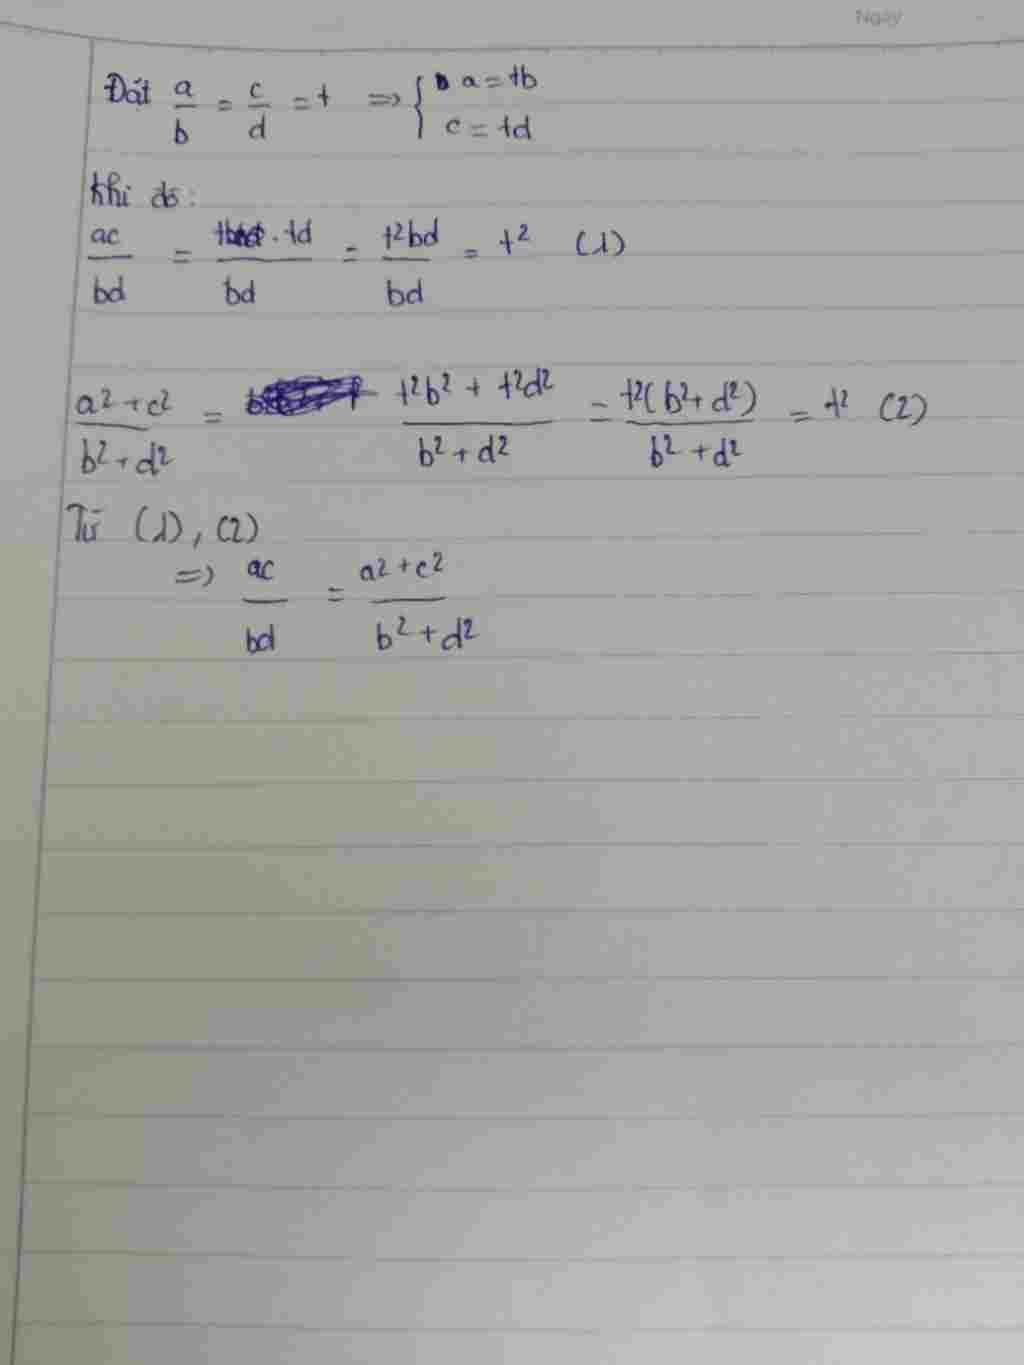 Ngày
Đặt a/b = c/d = t => { a = tb
c = td
Khi đó:
ac/bd = tb . td/bd = t²bd/bd = t² (1)
a² + c²/b² + d² = t²b² + t²d²/b² + d² = t²(b² + d²)/b² + d² = t² (2)
Từ (1), (2)
=> ac/bd = a² + c²/b² + d²